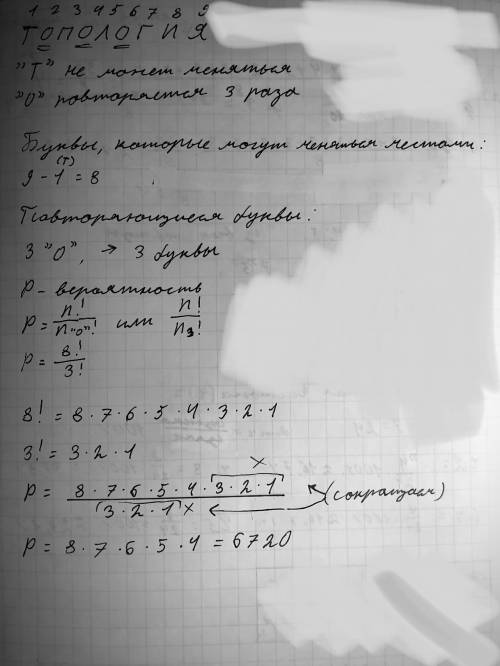 1 2 3 4 5 6 7 8 9
ТОПОЛОГИЯ
"Т" не может меняться
"О" повторяется 3 раза
Буквы, которые могут меняться местами:
(Т)
9 - 1 = 8
Повторяющиеся буквы:
3 "О", → 3 буквы
P - вероятность
P = n!/n"о"! или n!/n3!
P = 8!/3!
8! = 8·7·6·5·4·3·2·1
3! = 3·2·1
P = 8·7·6·5·4·(3·2·1)/(3·2·1) × (сокращаем)
P = 8·7·6·5·4 = 6720